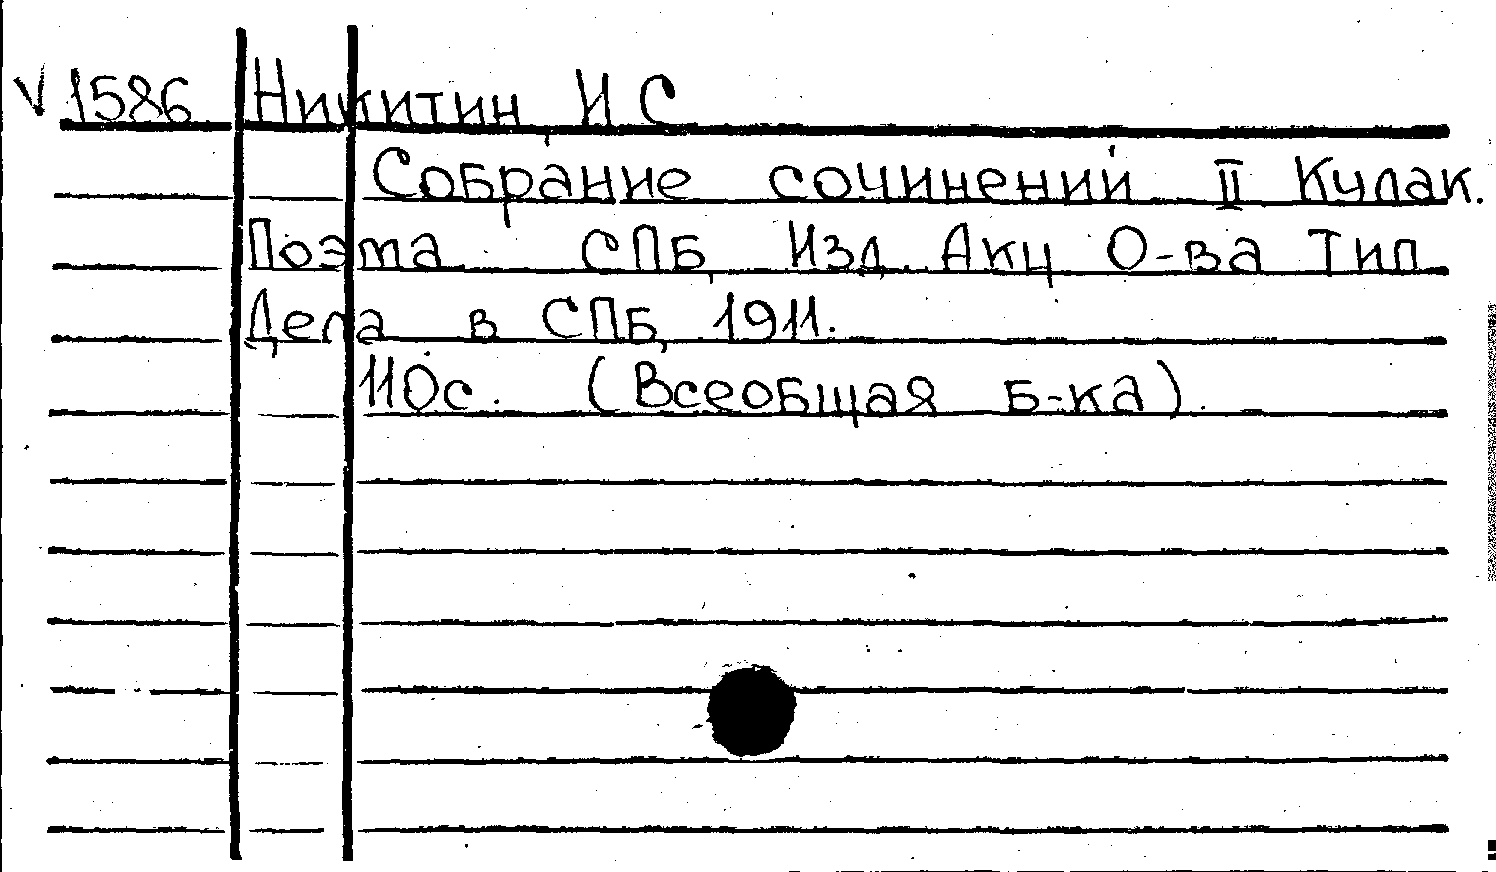 V 1586 Никитин, И С
Собрание сочинений II Кулак.
Поэма. СПБ, Изд. Акц О-ва Тип.
Дела в СПБ, 1911.
110с. (Всеобщая Б-ка).